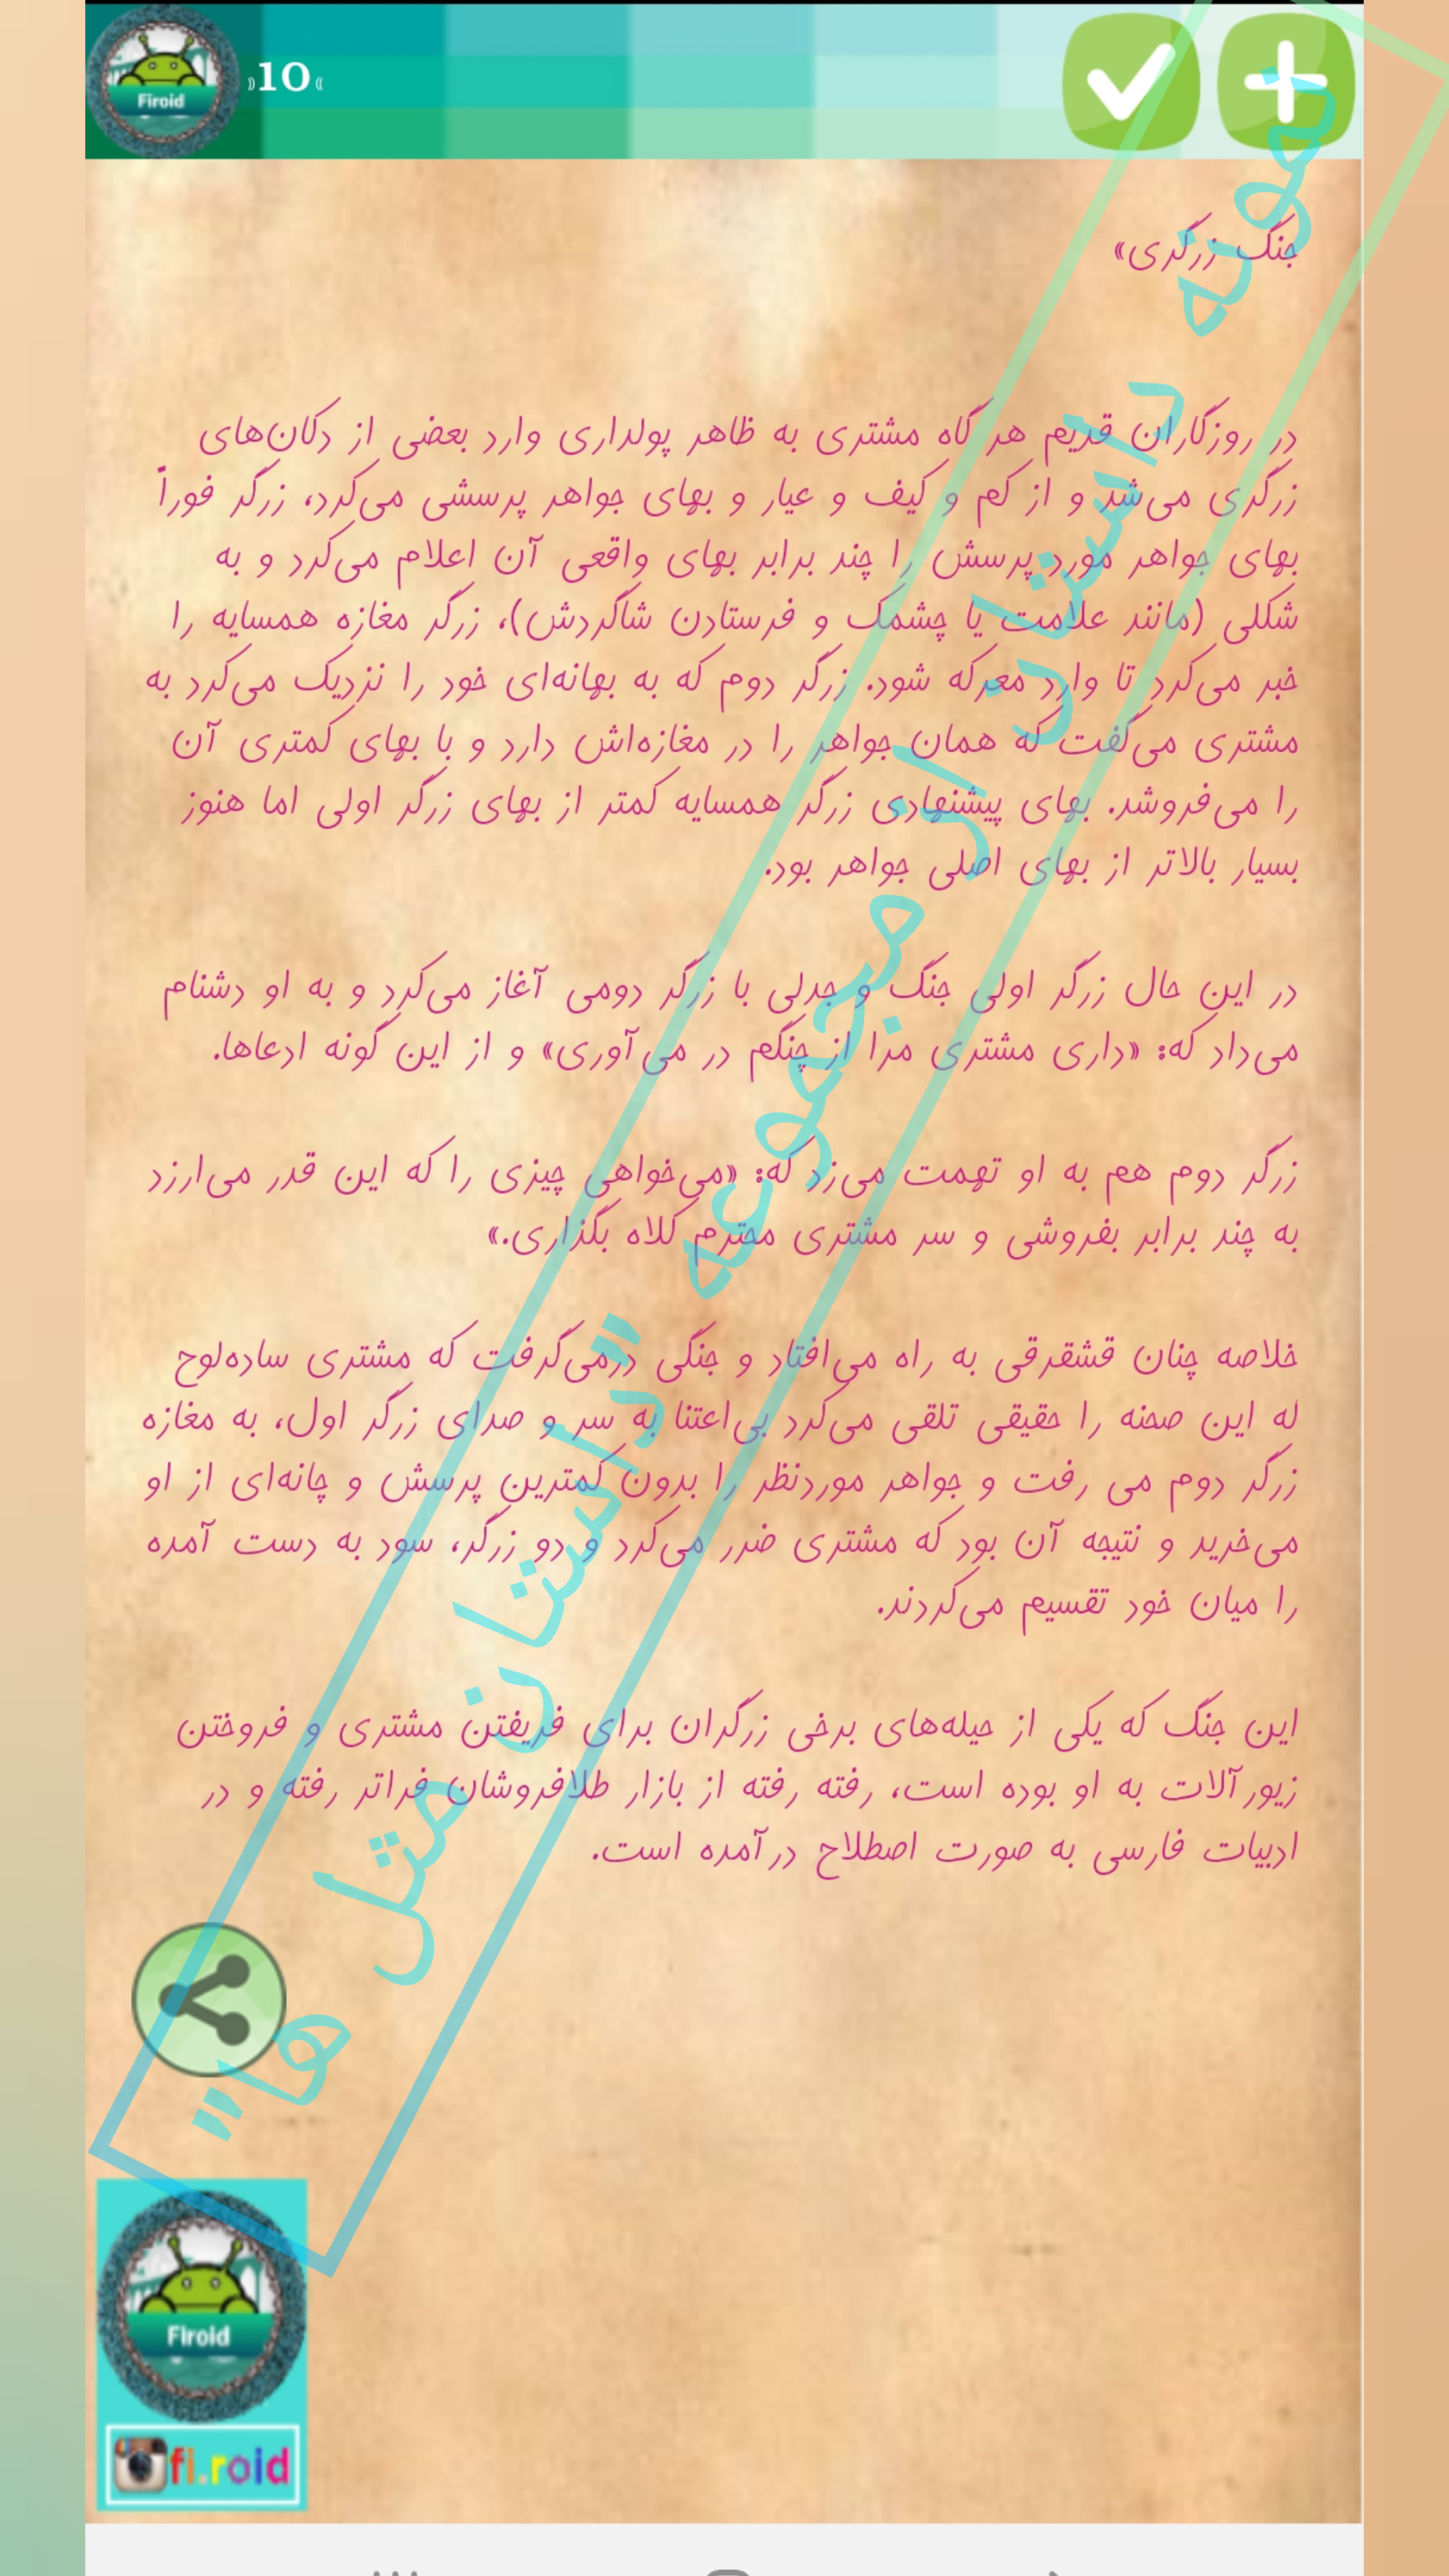 Firoid
«10»
جنگ زرگری»
در روزگاران قدیم هر گاه مشتری به ظاهر پولداری وارد بعضی از دکان‌های
زرگری می‌شد و از کم و کیف و عیار و بهای جواهر پرسشی می‌کرد، زرگر فوراً
بهای جواهر مورد پرسش را چند برابر بهای واقعی آن اعلام می‌کرد و به
شکلی (مانند علامت یا چشمک و فرستادن شاگردش)، زرگر مغازه همسایه را
خبر می‌کرد تا وارد معرکه شود. زرگر دوم که به بهانه‌ای خود را نزدیک می‌کرد به
مشتری می‌گفت که همان جواهر را در مغازه‌اش دارد و با بهای کمتری آن
را می‌فروشد. بهای پیشنهادی زرگر همسایه کمتر از بهای زرگر اولی اما هنوز
بسیار بالاتر از بهای اصلی جواهر بود.
در این حال زرگر اولی جنگ و جدلی با زرگر دومی آغاز می‌کرد و به او دشنام
می‌داد که: «داری مشتری مرا از چنگم در می‌آوری» و از این گونه ادعاها.
زرگر دوم هم به او تهمت می‌زد که: «می‌خواهی چیزی را که این قدر می‌ارزد
به چند برابر بفروشی و سر مشتری محترم کلاه بگذاری.»
خلاصه چنان قشقرقی به راه می‌افتاد و جنگی درمی‌گرفت که مشتری ساده‌لوح
له این صحنه را حقیقی تلقی می‌کرد بی‌اعتنا به سر و صدای زرگر اول، به مغازه
زرگر دوم می رفت و جواهر موردنظر را بدون کمترین پرسش و چانه‌ای از او
می‌خرید و نتیجه آن بود که مشتری ضرر می‌کرد و دو زرگر، سود به دست آمده
را میان خود تقسیم می‌کردند.
این جنگ که یکی از حیله‌های برخی زرگران برای فریفتن مشتری و فروختن
زیورآلات به او بوده است، رفته رفته از بازار طلافروشان فراتر رفته و در
ادبیات فارسی به صورت اصطلاح درآمده است.
نمونه داستان از مجموعه "داستان مثل ها"
Firoid
fi.roid